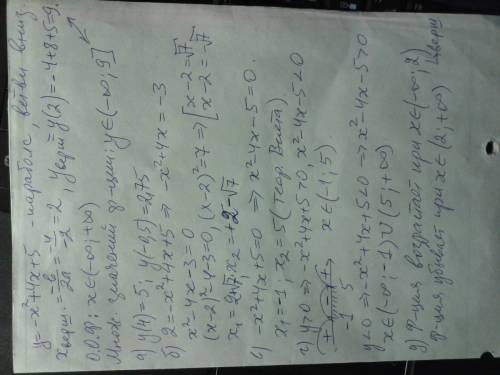 y=-x²+4x+5 - парабола, ветви вниз.
xверш.=-b/2a=-4/-2=2, yверш=y(2)=-4+8+5=9.
О.О.Ф: x∈(-∞;+∞)
Множ. значений ф-ции: y∈(-∞;9]
а) y(4)=5; y(-0,5)=2,75
б) 2=-x²+4x+5 ⇒ -x²+4x=-3
x²-4x-3=0
(x-2)²-4-3=0, (x-2)²=7 ⇒ [x-2=√7
x-2=√7
x₁=2+√7; x₂=+2-√7
в) -x²+4x+5=0 ⇒ x²-4x-5=0.
x₁=-1; x₂=5 (теор. Виета)
г) y>0 ⇒ -x²+4x+5>0, x²-4x-5<0
+ - +
-1 5
x∈(1;5).
y<0 ⇒ -x²+4x+5<0 ⇒ x²-4x-5>0
x∈(-∞;-1)∪(5;+∞)
д) Ф-ция возрастает при x∈(-∞;2)
Ф-ция убывает при x∈(2;+∞)